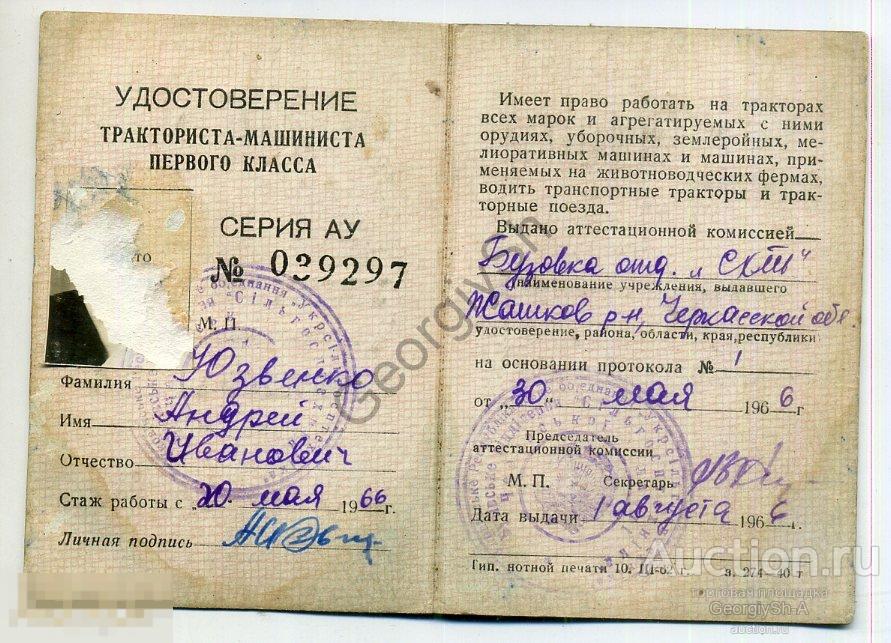 УДОСТОВЕРЕНИЕ
ТРАКТОРИСТА-МАШИНИСТА
ПЕРВОГО КЛАССА
СЕРИЯ АУ
№ 029297
М. П.
Фамилия Юзвенко
Имя Андрей
Отчество Иванович
Стаж работы с 20 мая 1966 г.
Личная подпись
Имеет право работать на тракторах
всех марок и агрегатируемых с ними
орудиях, уборочных, землеройных, ме-
лиоративных машинах и машинах, при-
меняемых на животноводческих фермах,
водить транспортные тракторы и трак-
торные поезда.
Выдано аттестационной комиссией
Бузовка отд. „СХТ"
наименование учреждения, выдавшего
Жашков р-н, Черкасской обл.
удостоверение, района, области, края, республики
на основании протокола № 1
от „30" мая 1966 г
Председатель
аттестационной комиссии
М. П. Секретарь
Дата выдачи 1 августа 1966 г.
Тип. нотной печати 10. III-62 г. з. 274—40 т
GeorgiySh
Auction.ru
торговая площадка
GeorgiySh-A
auction.ru